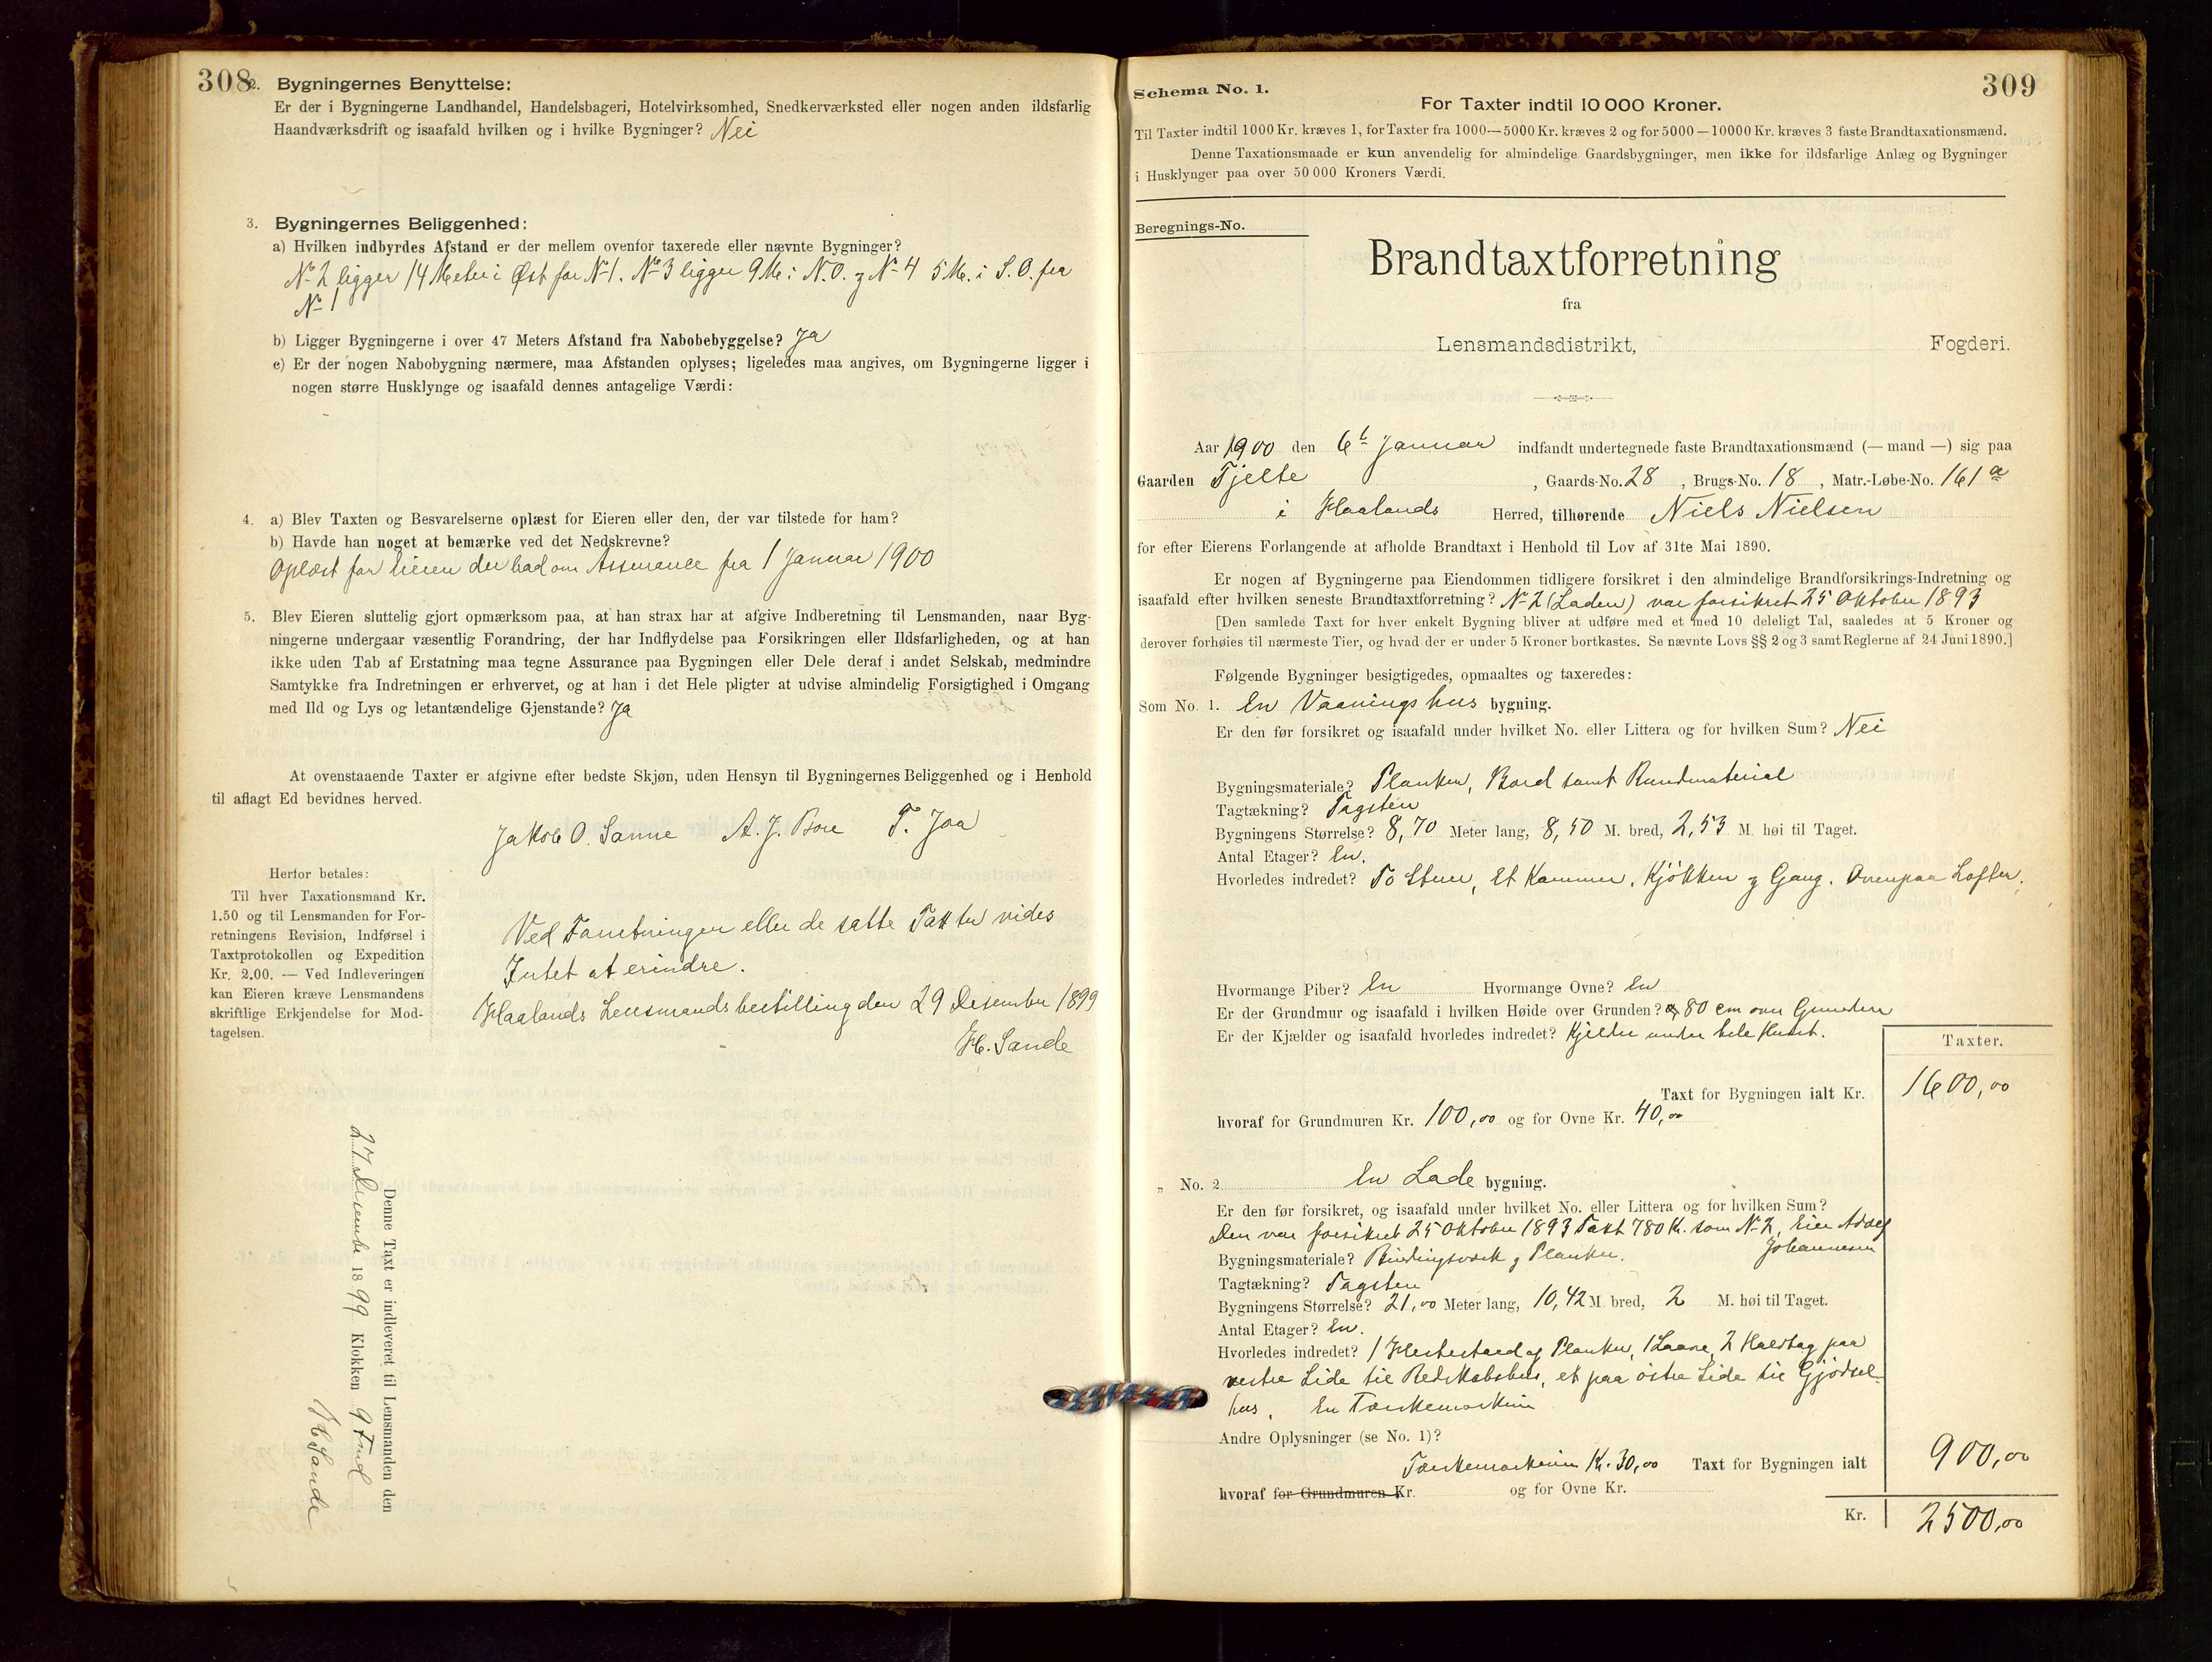 308
2. Bygningernes Benyttelse:
Er der i Bygningerne Landhandel, Handelsbageri, Hotelvirksomhed, Snedkerværksted eller nogen anden ildsfarlig
Haandværksdrift og isaafald hvilken og i hvilke Bygninger? Nei
3. Bygningernes Beliggenhed:
a) Hvilken indbyrdes Afstand er der mellem ovenfor taxerede eller nævnte Bygninger?
No 2 ligger 14 Meter i Øst for No 1. No 3 ligger 9 M. i N.O. og No 4 5 M. i S.O. fra
No 1
b) Ligger Bygningerne i over 47 Meters Afstand fra Nabobebyggelse? Ja
c) Er der nogen Nabobygning nærmere, maa Afstanden oplyses; ligeledes maa angives, om Bygningerne ligger i
nogen større Husklynge og isaafald dennes antagelige Værdi:
4. a) Blev Taxten og Besvarelserne oplæst for Eieren eller den, der var tilstede for ham?
b) Havde han noget at bemærke ved det Nedskrevne?
Oplæst for Eieren der bad om Assurance fra 1 Januar 1900
5. Blev Eieren sluttelig gjort opmærksom paa, at han strax har at afgive Indberetning til Lensmanden, naar Byg-
ningerne undergaar væsentlig Forandring, der har Indflydelse paa Forsikringen eller Ildsfarligheden, og at han
ikke uden Tab af Erstatning maa tegne Assurance paa Bygningen eller Dele deraf i andet Selskab, medmindre
Samtykke fra Indretningen er erhvervet, og at han i det Hele pligter at udvise almindelig Forsigtighed i Omgang
med Ild og Lys og letantændelige Gjenstande? Ja
At ovenstaaende Taxter er afgivne efter bedste Skjøn, uden Hensyn til Bygningernes Beliggenhed og i Henhold
til aflagt Ed bevidnes herved.
Jakob O. Sanne A. J. Bore T. Joa
Herfor betales:
Til hver Taxationsmand Kr.
1.50 og til Lensmanden for For-
retningens Revision, Indførsel i
Taxtprotokollen og Expedition
Kr. 2.00. — Ved Indleveringen
kan Eieren kræve Lensmandens
skriftlige Erkjendelse for Mod-
tagelsen.
Ved Forretningen eller de satte Taxter vides
Intet at erindre.
Haalands Lensmandsbestilling den 29 Desember 1899
H. Sande
Denne Taxt er indleveret til Lensmanden den
27 Desember 1899 Klokken 9 Fmd
H Sande
309
Schema No. 1.
For Taxter indtil 10 000 Kroner.
Til Taxter indtil 1000 Kr. kræves 1, for Taxter fra 1000—5000 Kr. kræves 2 og for 5000—10000 Kr. kræves 3 faste Brandtaxationsmænd.
Denne Taxationsmaade er kun anvendelig for almindelige Gaardsbygninger, men ikke for ildsfarlige Anlæg og Bygninger
i Husklynger paa over 50 000 Kroners Værdi.
Beregnings-No.
Brandtaxtforretning
fra
Lensmandsdistrikt, Fogderi.
Aar 1900 den 6t Januar indfandt undertegnede faste Brandtaxationsmænd (— mand —) sig paa
Gaarden Tjelte, Gaards-No. 28, Brugs-No. 18, Matr.-Løbe-No. 161 a
i Haalands Herred, tilhørende Niels Nielsen
for efter Eierens Forlangende at afholde Brandtaxt i Henhold til Lov af 31te Mai 1890.
Er nogen af Bygningerne paa Eiendommen tidligere forsikret i den almindelige Brandforsikrings-Indretning og
isaafald efter hvilken seneste Brandtaxtforretning? No 2 (Laden) var forsikret 25 Oktober 1893
[Den samlede Taxt for hver enkelt Bygning bliver at udføre med et med 10 deleligt Tal, saaledes at 5 Kroner og
derover forhøies til nærmeste Tier, og hvad der er under 5 Kroner bortkastes. Se nævnte Lovs §§ 2 og 3 samt Reglerne af 24 Juni 1890.]
Følgende Bygninger besigtigedes, opmaaltes og taxeredes:
Som No. 1. En Vaaningshus bygning.
Er den før forsikret og isaafald under hvilket No. eller Littera og for hvilken Sum? Nei
Bygningsmateriale? Planker, Bord samt Rundmaterial
Tagtækning? Tagsten
Bygningens Størrelse? 8,70 Meter lang, 8,50 M. bred, 2,53 M. høi til Taget.
Antal Etager? En.
Hvorledes indredet? To Stuer, et Kammer, Kjökken og Gang. Ovenpaa Lofter.
Hvormange Piber? En Hvormange Ovne? En
Er der Grundmur og isaafald i hvilken Høide over Grunden? 80 cm over Grunden
Er der Kjælder og isaafald hvorledes indredet? Kjelder under hele Huset.
Taxter.
Taxt for Bygningen ialt Kr. 1600,00
hvoraf for Grundmuren Kr. 100,00 og for Ovne Kr. 40,00
„ No. 2 En Lade bygning.
Er den før forsikret, og isaafald under hvilket No. eller Littera og for hvilken Sum?
Den var forsikret 25 Oktober 1893 Taxt 780 K. som No 2, Eier Adolf
Johannesen
Bygningsmateriale? Bindingsverk og Planker.
Tagtækning? Tagsten
Bygningens Størrelse? 21,00 Meter lang, 10,42 M. bred, 2 M. høi til Taget.
Antal Etager? En.
Hvorledes indredet? 1 Hestestald af Planker, 1 Laave, 2 Halvtag paa
vestre Side til Redskabshus, et paa östre Side til Gjödsel-
hus, En Tærskemaskin
Andre Oplysninger (se No. 1)?
Tærskemaskinen K. 30,00 Taxt for Bygningen ialt 900,00
hvoraf for Grundmuren Kr. og for Ovne Kr.
Kr. 2500,00